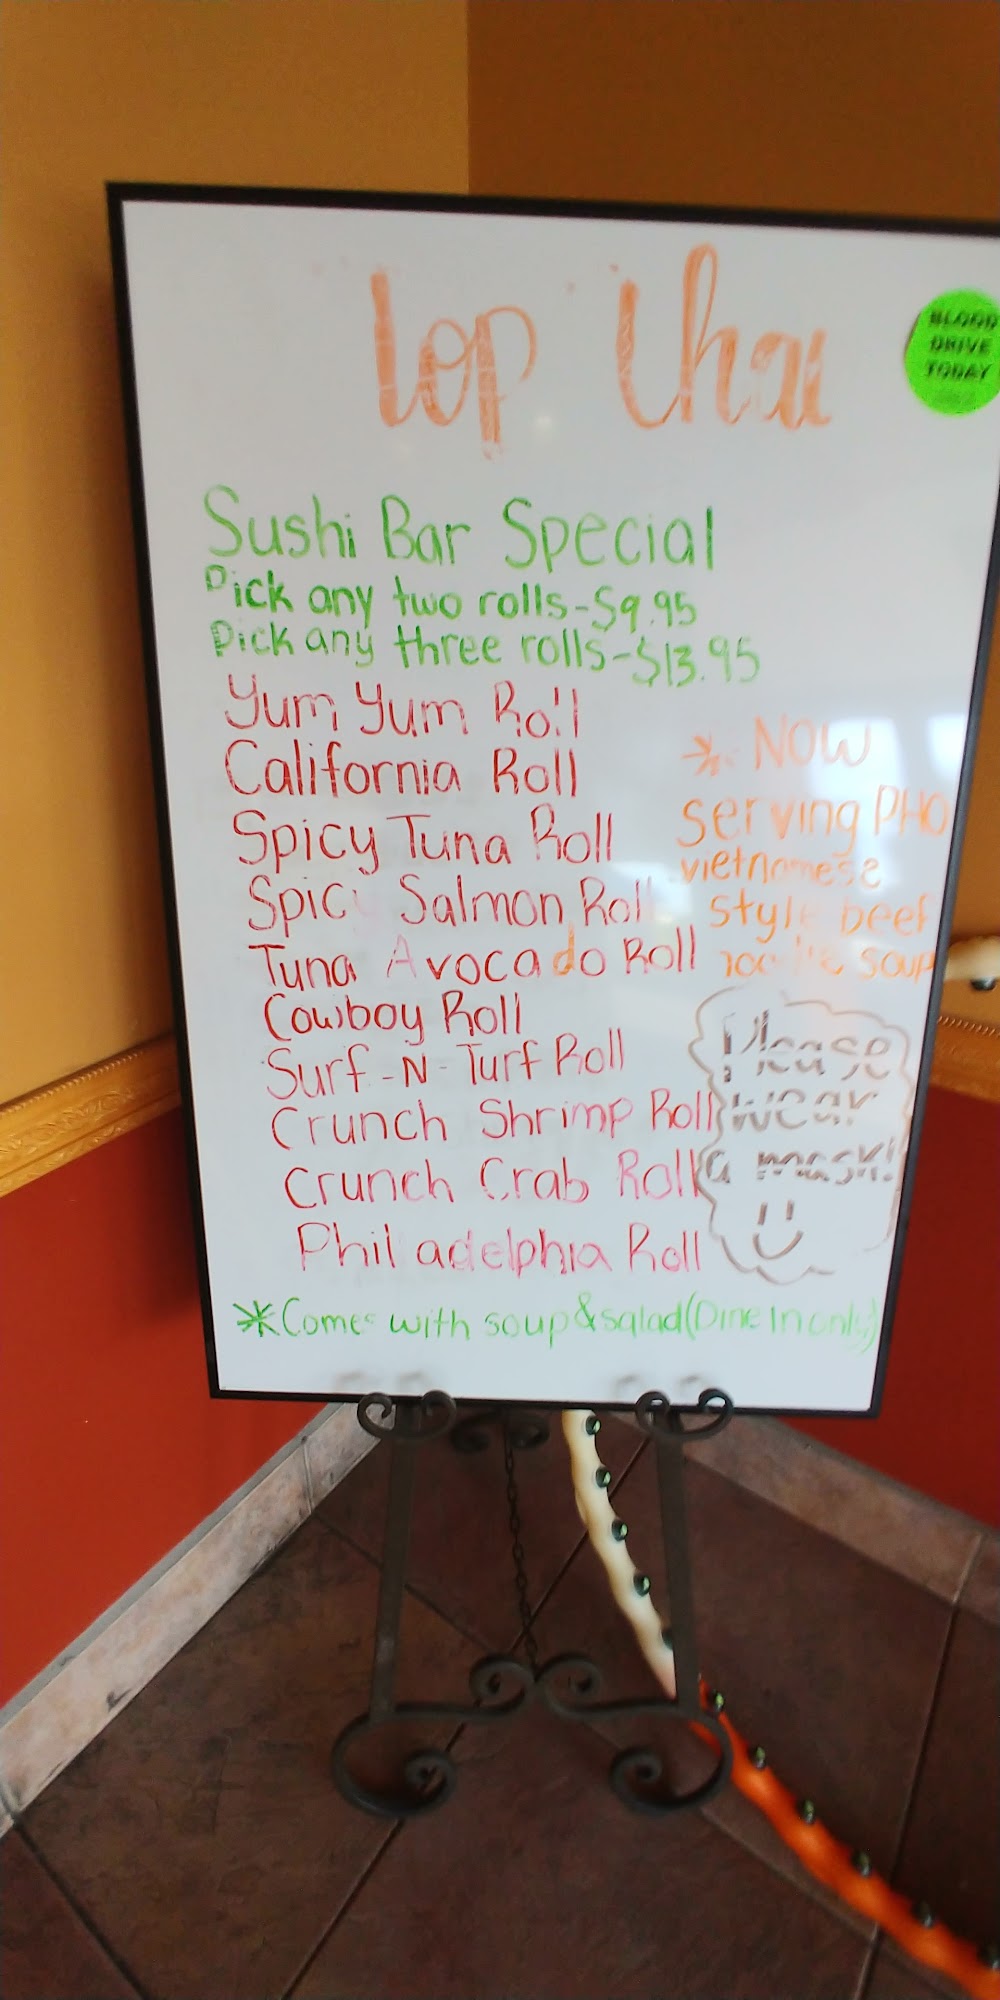 Top Thai
BLOOD
DRIVE
TODAY
Sushi Bar Special
Pick any two rolls-$9.95
Pick any three rolls-$13.95
Yum Yum Roll
California Roll
Spicy Tuna Roll
Spicy Salmon Roll
Tuna Avocado Roll
Cowboy Roll
Surf-N-Turf Roll
Crunch Shrimp Roll
Crunch Crab Roll
Philadelphia Roll
* Now
serving PHO
vietnamese
style beef
noodle soup
Please
wear
a mask!
*Comes with soup & salad (Dine In only)